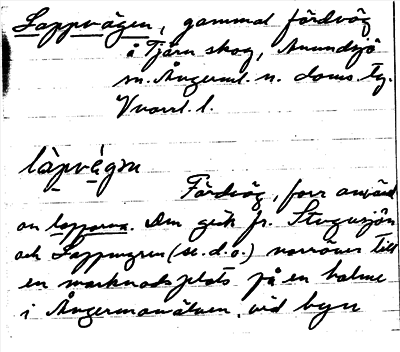 Lappvägen, gammal färdväg
å Tjärn skog, Anundsjö
m. Ångerml. n. doms. tg.
Vnorrl. l.
làpvė̀gm
Färdväg, förr använd
av lapparna. Den gick fr. Stugusjön
och Lappmyren (se. d. o.) norröver till
en marknadsplats på en holme
i Ångermanälven, vid byn